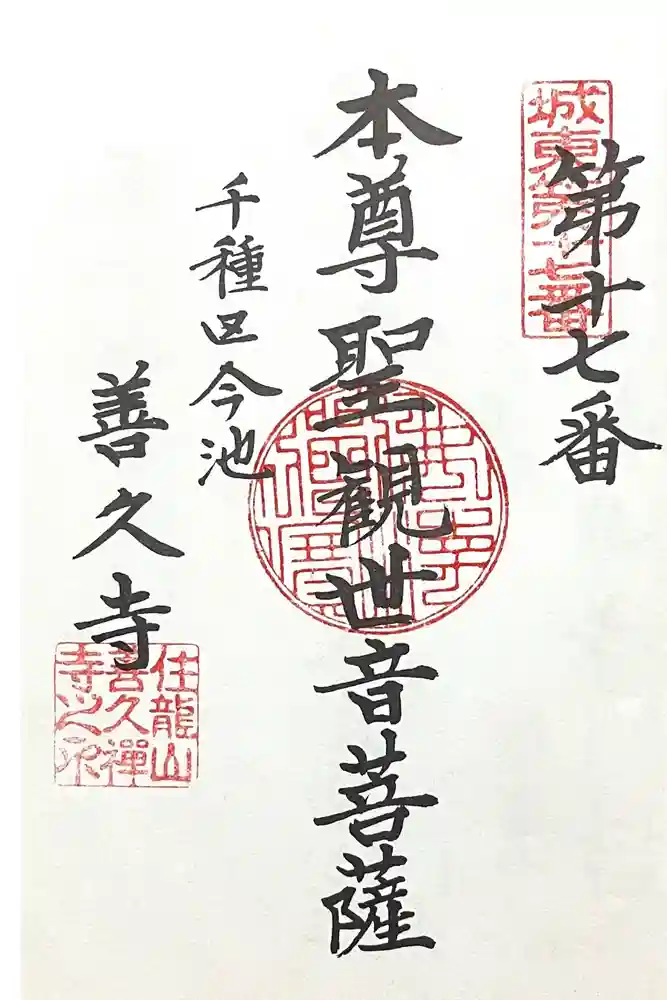 城東第十七番
第十七番
本尊聖観世音菩薩
千種区今池
善久寺
住龍山
善久禅
寺之印